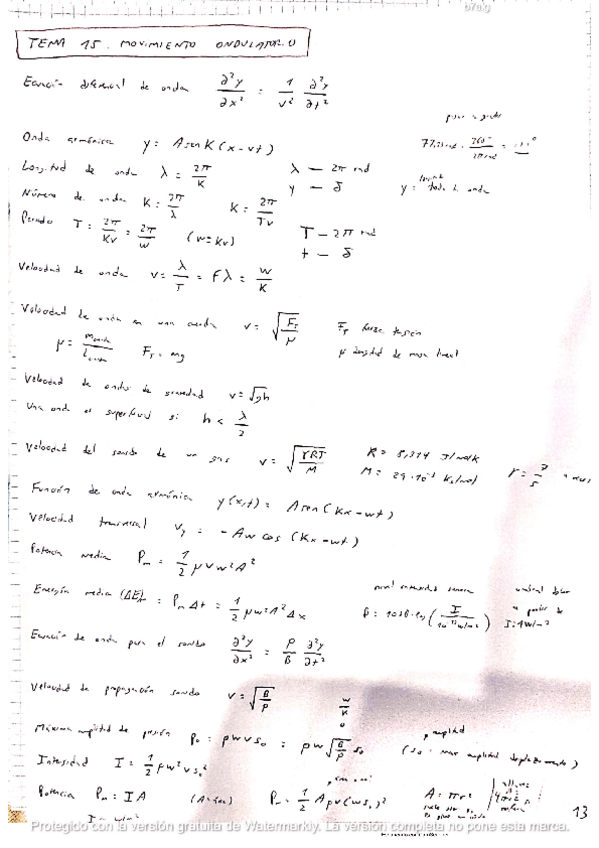 TEMA 15. MOVIMIENTO ONDULATORIO
Ecuación diferencial de onda ∂²y/∂x² = 1/v² ∂²y/∂t²
Onda armónica y = A sen K (x - vt)
Longitud de onda λ = 2π/K λ — 2π rad
y — δ
Número de onda K = 2π/λ K = 2π/Tv
Periodo T = 2π/Kv = 2π/w (w = Kv) T — 2π rad
t — δ
Velocidad de onda v = λ/T = Fλ = w/K
Velocidad de onda en una cuerda v = √(F_T/μ) F_T fuerza tensión
μ = m/L F_T = mg μ densidad de masa lineal
Velocidad de ondas de gravedad v = √gh
Una onda es superficial si h < λ/2
Velocidad del sonido de un gas v = √(γRT/M) R = 8,314 J/molK
M = 29·10⁻³ Kg/mol γ = 7/5
Función de onda armónica y(x,t) = A sen (Kx - wt)
Velocidad transversal v_y = -Aw cos (Kx - wt)
Potencia media P_m = 1/2 μvw²A²
Energía media (ΔE)_m = P_m Δt = 1/2 μw²A²Δx
nivel intensidad sonora
Ecuación de onda para el sonido ∂²y/∂x² = ρ/B ∂²y/∂t²
Velocidad de propagación sonido v = √(B/ρ)
w/K
Máxima amplitud de presión P₀ = ρwvs₀ = ρw√(B/ρ) s₀ (s₀ = max amplitud desplazamiento)
amplitud
Intensidad I = 1/2 ρw²vs₀²
Potencia P_m = IA P_m = 1/2 Aρv(ws₀)² A = πr²
13
Protegido con la versión gratuita de Watermarkly. La versión completa no pone esta marca.